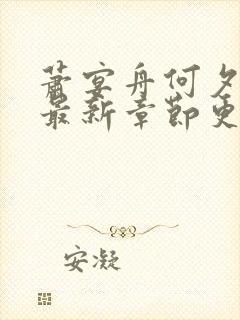 萧宴舟何夕
最新章节更
安凝